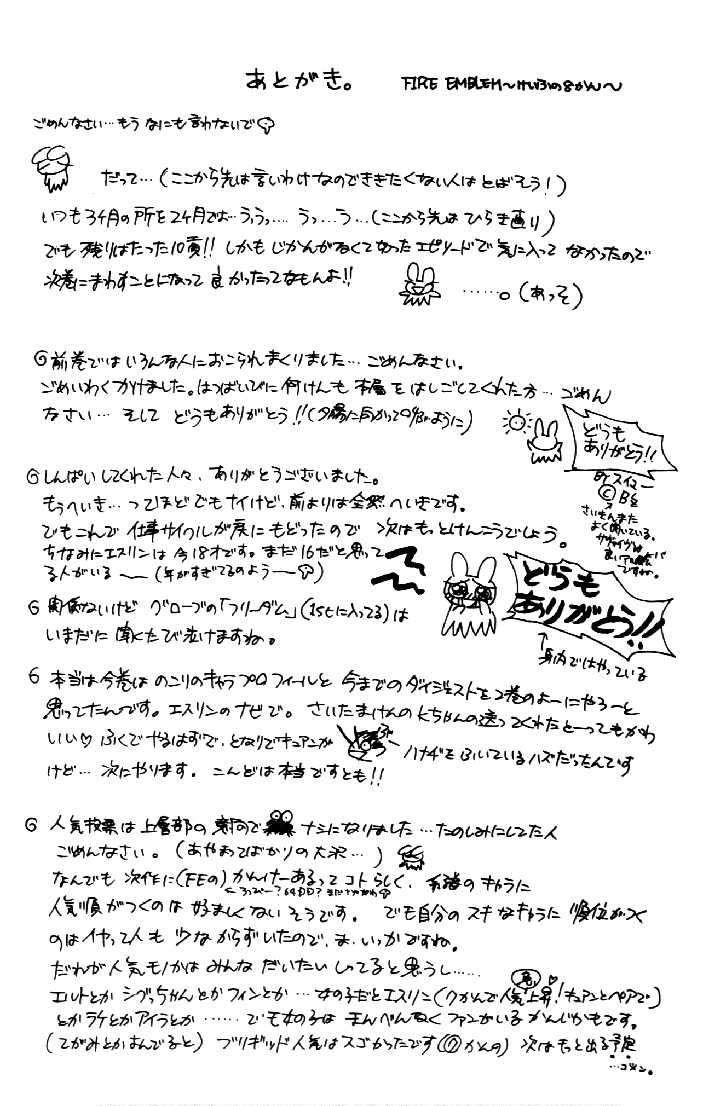 あとがき。 FIRE EMBLEM〜けいふの8かん〜
ごめんなさい…もうなにも言わないで
だって…(ここから先は言いわけなのでききたくない人はとばそう!)
いつも3ヶ月の所を2ヶ月では…うぅっ…. うっ…う…(ここから先はひらき直り)
でも残りはたった10頁!! しかもじかんがなくてなったエピソードで気に入ってなかったので
次巻にまわすことになって良かったってなもんよ!!
……。(あっそ)
前巻ではいろんな人におこられまくりました… ごめんなさい。
ごめいわくかけました。はつばいびに何けんも本屋をはしごしてくれた方… ごめん
なさい… そして どうもありがとう!!(夕陽に向かって叫ぶように)
どうも
ありがとう!!
byスイマー
ⓒB'z
さいもんまた
よく聞いている。
しんぱいしてくれた人々、ありがとうございました。
もうへいき…ってほどでもナイけど、前よりは全然へいきです。
でもこれで仕事サイクルが元にもどったので 次はもっとけんこうでしょう。
ちなみにエスリンは今18才です。まだ16だと思って
る人がいる〜(年がすぎてるのよう〜)
どうも
ありがとう!!
↑身内ではやっている
関係ないけど グローブの「フリーダム」(1stに入ってる)は
いまだに聞くたび泣けますね。
本当は今巻はのこりのキャラプロフィールと 今までのダイジェストを2巻のよーにやろーと
思ってたんです。エスリンのナビで。さいたまけんのKちゃんの送ってくれたとーってもかわ
いい♡ふくでやるはずで、となりでキュアンが
ハナヂをふいているハズだったんです
けど… 次にやります。 こんどは本当ですとも!!
人気投票は上層部の 方々 ナシになりました…たのしみにしてた人
ごめんなさい。(あやまってばかりの大沢…)
なんでも 次作に(FEの)かんけーあるってコトらしく、 のキャラに
人気順がつくのは好ましくないそうです。 でも自分のスキなキャラに順位がつく
のはイヤって人も少なからずいたので、ま、いっかですね。
だれが人気モノかはみんなだいたいしってると思うし……
エルトとかシグっちゃんとかフィンとか…女の子だとエスリン(7かんで人気急上昇!キュアンとペアで)
とかラケとかアイラとか ……でも女の子はまんべんなくファンがいるかんじかもです。
(てがみとかよんでると) ブリギッド人気はスゴかったです(⑦かんの) 次はもっと出る予定
…ゴメン。